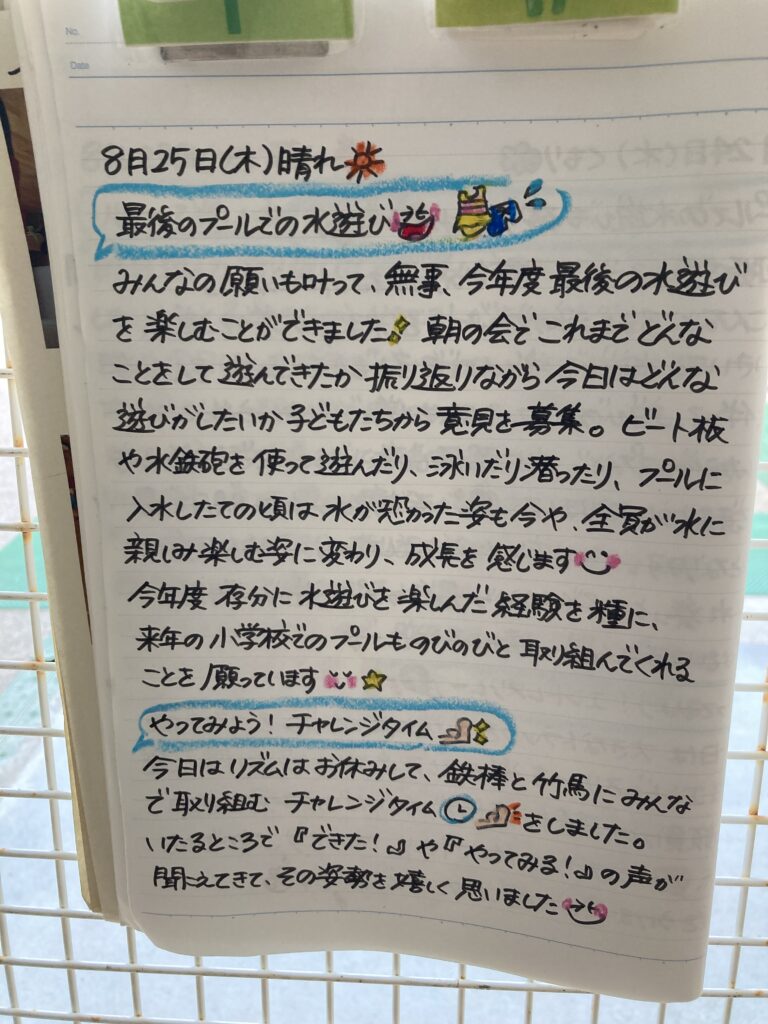 No.
Date
8月25日(木)晴れ
最後のプールでの水遊び
みんなの願いも叶って、無事、今年度最後の水遊び
を楽しむことができました 朝の会でこれまでどんな
ことをして遊んできたか振り返りながら今日はどんな
遊びがしたいか子どもたちから意見を募集。ビート板
や水鉄砲を使って遊んだり、泳いだり潜ったり、プールに
入水したての頃は水が恐かった姿も今や、全員が水に
親しみ楽しむ姿に変わり、成長を感じます
今年度存分に水遊びを楽しんだ経験を種に、
来年の小学校でのプールものびのびと取り組んでくれる
ことを願っています
やってみよう!チャレンジタイム
今日はリズムはお休みして、鉄棒と竹馬にみんな
で取り組むチャレンジタイムをしました。
いたるところで『できた!』や『やってみる!』の声が
聞こえてきて、その姿勢を嬉しく思いました